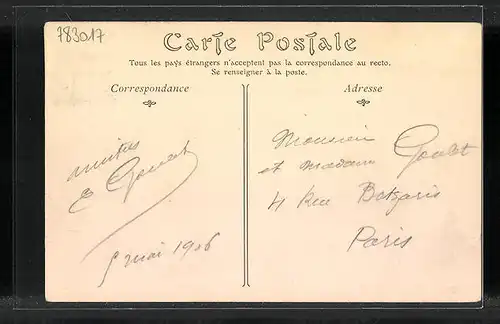 783017
Carte Postale
Tous les pays étrangers n'acceptent pas la correspondance au recto.
Se renseigner à la poste.
Correspondance
Adresse
amitiés
E
5 mai 1906
Monsieur
et madame Goulet
4 Rue Botzaris
Paris